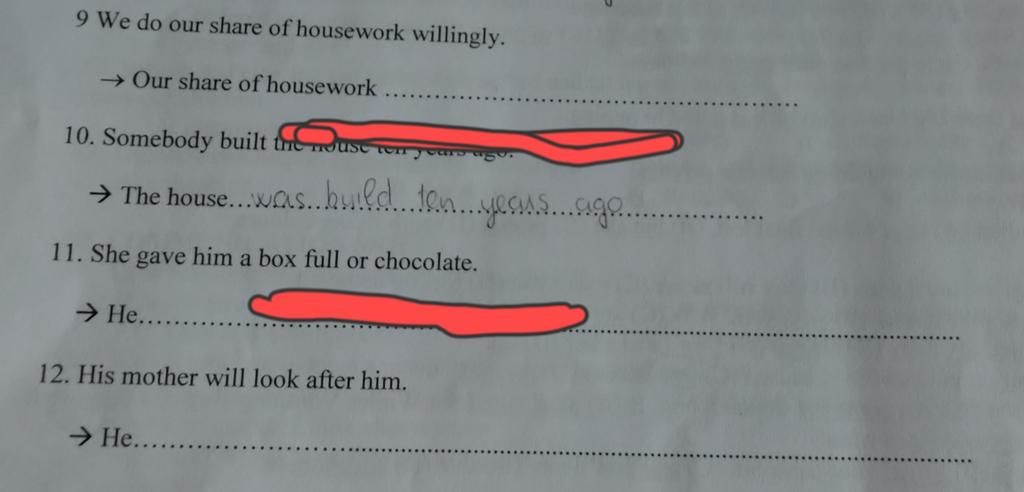 9 We do our share of housework willingly.
→ Our share of housework ..........
10. Somebody built the house ten years ago.
→ The house...was build ten years ago..........
11. She gave him a box full or chocolate.
→ He..........
12. His mother will look after him.
→ He..........